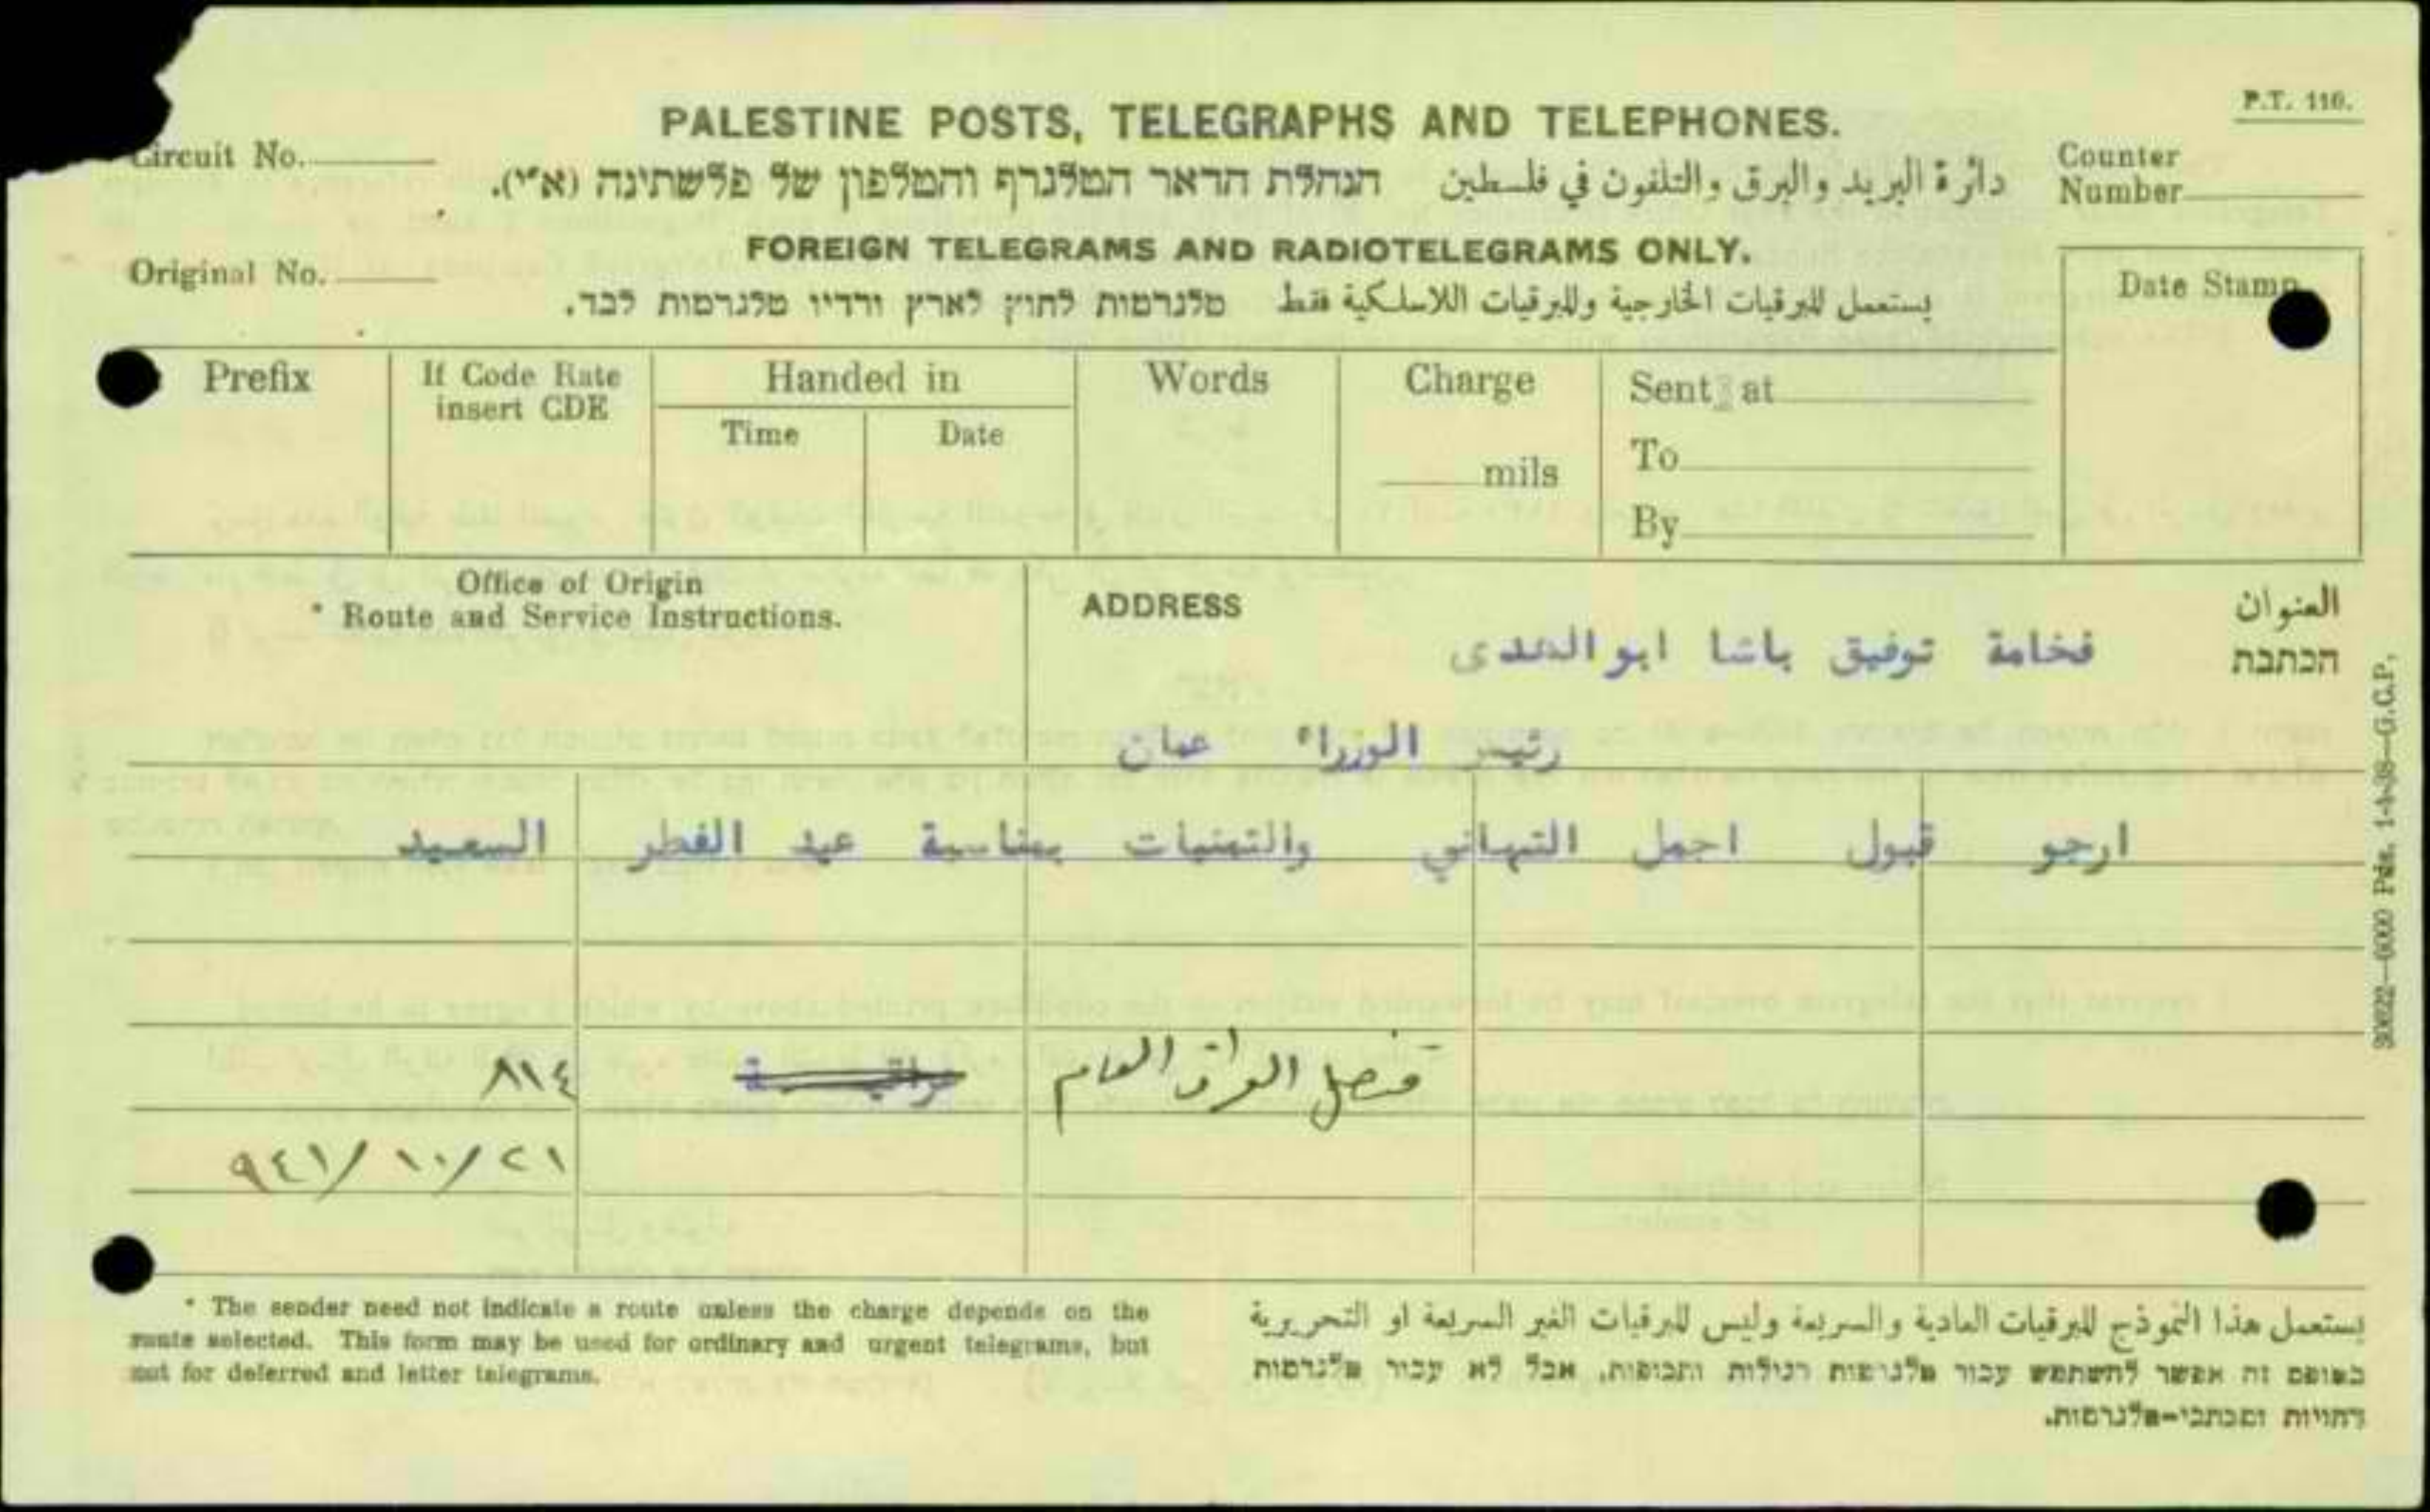 P.T. 110.
PALESTINE POSTS, TELEGRAPHS AND TELEPHONES.
Circuit No.
دائرة البريد والبرق والتلفون في فلسطين הנהלת הדאר המלגרף והמלפון של פלשתינה (א״י).
Counter
Number
FOREIGN TELEGRAMS AND RADIOTELEGRAMS ONLY.
Original No.
يستعمل للبرقيات الخارجية وللبرقيات اللاسلكية فقط טלגרמות לחוץ לארץ ורדיו טלגרמות לבד.
Date Stamp
Prefix
If Code Rate
insert CDE
Handed in
Time
Date
Words
Charge
mils
Sent at
To
By
Office of Origin
* Route and Service Instructions.
ADDRESS
العنوان
הכתבת
فخامة توفيق باشا ابو الهدى
رئيس الوزراء عمان
ارجو قبول اجمل التهاني والتمنيات بمناسبة عيد الفطر السعيد
قنصل العراق العام
٨١٤
٩٤١/١٠/٢١
* The sender need not indicate a route unless the charge depends on the
route selected. This form may be used for ordinary and urgent telegrams, but
not for deferred and letter telegrams.
يستعمل هذا النموذج للبرقيات العادية والسريعة وليس للبرقيات الغير السريعة او التحريرية
בטופס זה אפשר להשתמש עבור טלגרמות רגילות ותכופות, אבל לא עבור טלגרמות
דחויות ומכתבי-טלגרמות.
30622—6000 Pds. 1-4-38—G.C.P.